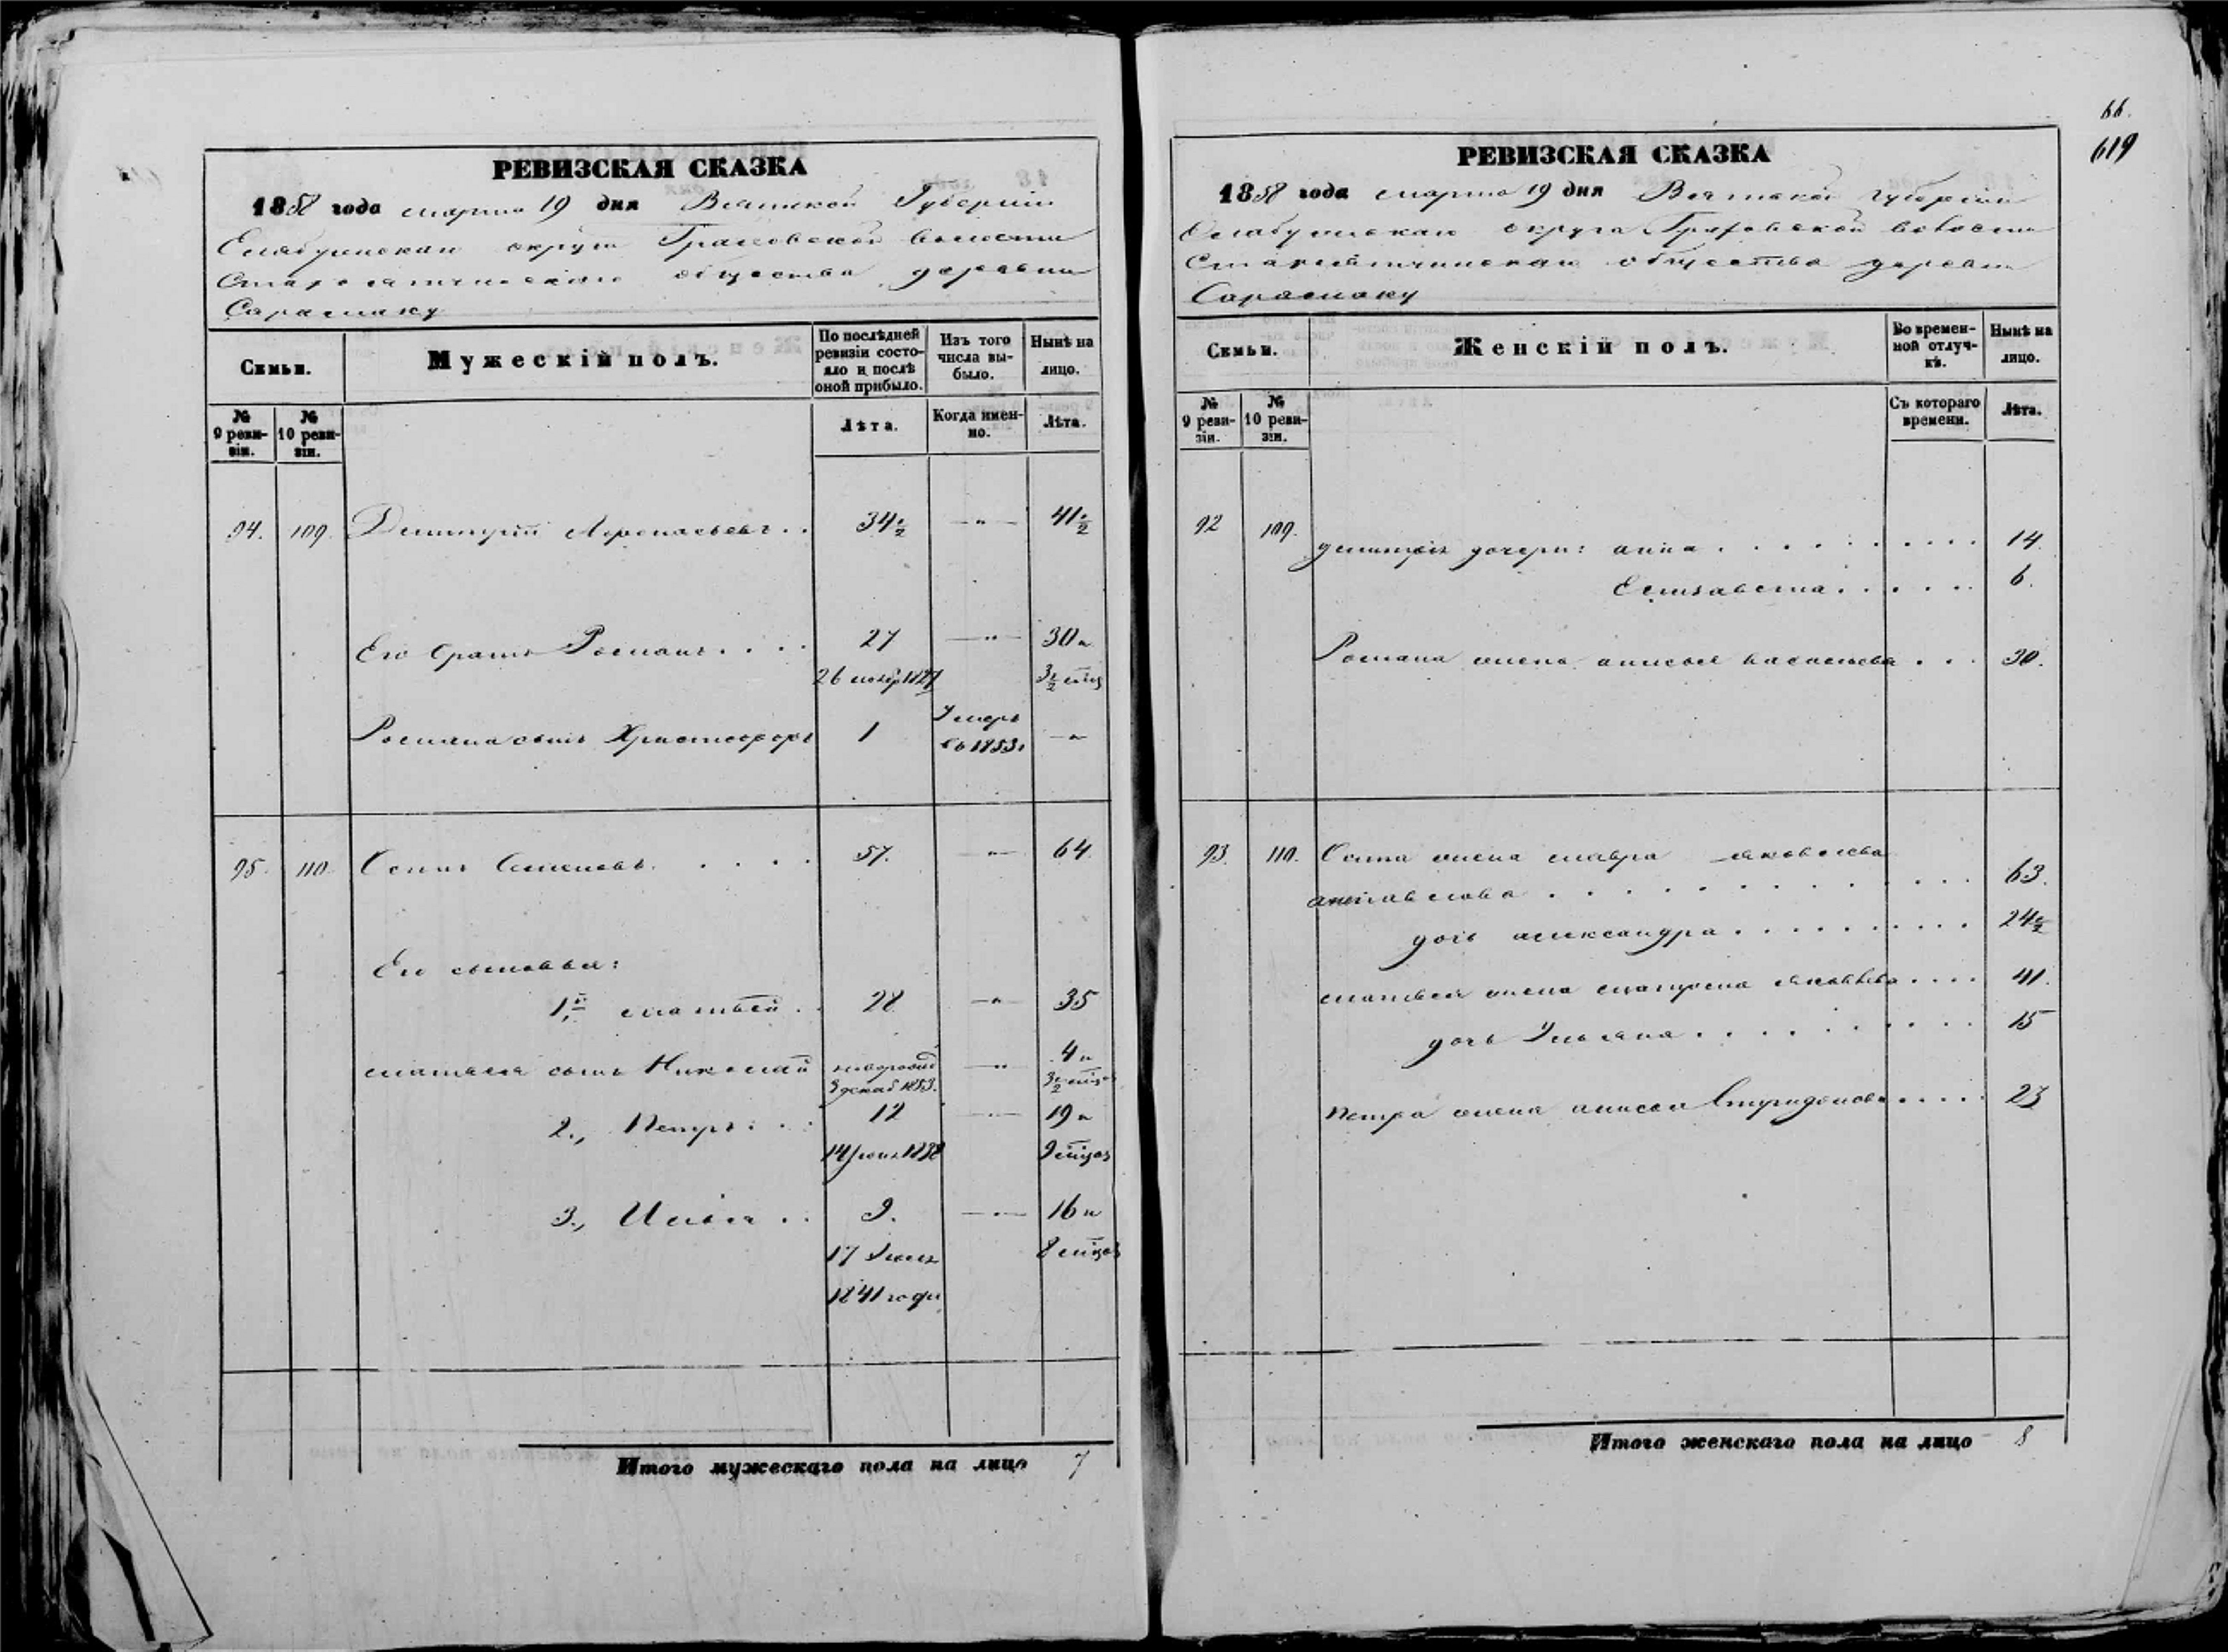 66.
619
РЕВИЗСКАЯ СКАЗКА
1858 года марта 19 дня Вятской Губерніи
Елабужскаго округа Граховской волости
общества деревни
Сарамаку
Семьи.
Мужескій полъ.
По послѣдней ревизіи состояло и послѣ оной прибыло.
Изъ того числа выбыло.
Нынѣ на лицо.
№ 9 ревизіи.
№ 10 ревизіи.
Лѣта.
Когда именно.
Лѣта.
94. 109. Димитрій Афонасьевъ . . 34½ — " — 41½
Его братъ Романъ . . . . 27 — " — 30 и
26 1827 3½ мѣсц
Романа сынъ Христофоръ 1 Умеръ въ 1853г — "
95. 110. Осипъ Семеновъ . . . . 57. — " — 64
Его сыновья:
1й Матвѣй . . 28 — " — 35
Матвѣя сынъ Николай новорожд 3 декаб 1853. — " — 4 и 3½ мѣсц
2., Петръ . . . 12 — " — 19 и
14 1838 9 мѣсцов
3., Илья . . 9. — " — 16 и
17 Іюля 8 мѣсцов
1841 года
Итого мужескаго пола на лицо 7
РЕВИЗСКАЯ СКАЗКА
1858 года марта 19 дня Вятской губерніи
Елабужскаго округа Граховской волости
общества деревни
Сарамаку
Семьи.
Женскій полъ.
Во временной отлучкѣ.
Нынѣ на лицо.
№ 9 ревизіи.
№ 10 ревизіи.
Съ котораго времени.
Лѣта.
92 109. Димитрія дочери: Анна . . . . . . . . . . 14.
Елизавета . . . . . . 6.
Романа жена Анисья . . . 30.
93. 110. Осипа жена Мавра Яковлева
. . . . . . . . . . . . 63.
дочь Александра . . . . . . . . . . 24½
Матвѣя жена Матрена Яковлева . . . . 41.
дочь Ульяна . . . . . . . . . . 15
Петра жена Анисья Спиридонова . . . . . 23
Итого женскаго пола на лицо 8